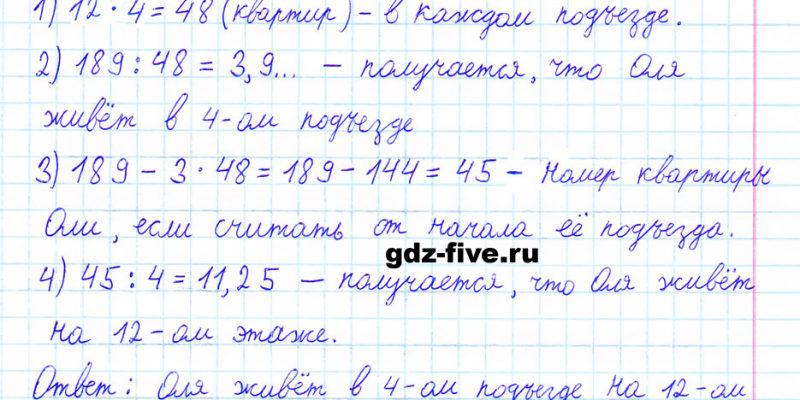 1) 12 · 4 = 48 (квартир) - в каждом подъезде.
2) 189 : 48 = 3,9... - получается, что Оля
живёт в 4-ом подъезде
3) 189 - 3 · 48 = 189 - 144 = 45 - номер квартиры
Оли, если считать от начала её подъезда.
gdz-five.ru
4) 45 : 4 = 11,25 - получается, что Оля живёт
на 12-ом этаже.
Ответ: Оля живёт в 4-ом подъезде на 12-ом